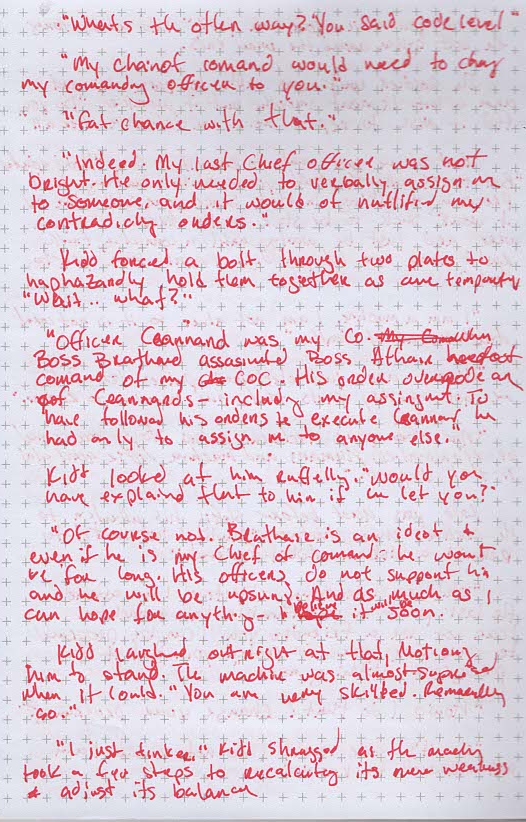 "Whats th other way? You said code level"
"My chainof comand would need to chang
my comandng officer to you."
"Fat chance with that."
"Indeed. My last Chief officer was not
bright. He only needed to verbally assign me
to someone, and it would of nullified my
contradichy orders."
Kidd forced a bolt through two plates to
haphazardly hold them together as one temporarily
"Wait... what?"
"Officer Ceannard was my Co. When
Boss Brathare assasinated Boss Athair
comand of my COC. His order overrode an
of Ceannards - includng my assingmt. To
have followed his orders to execute Ceannard he
had only to assign me to anyone else."
Kidd looked at him ruffelly. "would you
have explaind that to him if he let you?"
"Of course not. Brathair is an ideot &
even if he is my Chief of comand - he wont
be for long. His officers do not support him
and he will be upsurpd. And as much as I
can hope for anything - I believe it will be soon.
Kidd laughed outright at that, Motiong
him to stand. The machine was almost suprised
when it could. "You are very skilled. Remarcably
so."
"I just tinker," Kidd shrugged as th machy
took a few steps to recalcutng its new weakness
& adjust its balance